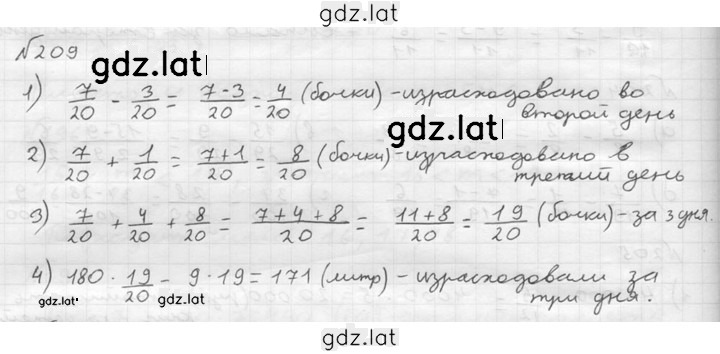 gdz.lat
№209
gdz.lat
1) 7/20 - 3/20 = 7-3/20 = 4/20 (бочки) - израсходовано во
второй день
gdz.lat
2) 7/20 + 1/20 = 7+1/20 = 8/20 (бочки) - израсходовано в
третий день
3) 7/20 + 4/20 + 8/20 = 7+4+8/20 = 11+8/20 = 19/20 (бочки) - за 3 дня.
4) 180 · 19/20 = 9 · 19 = 171 (литр) - израсходовали за
три дня.
gdz.lat
gdz.lat
gdz.lat